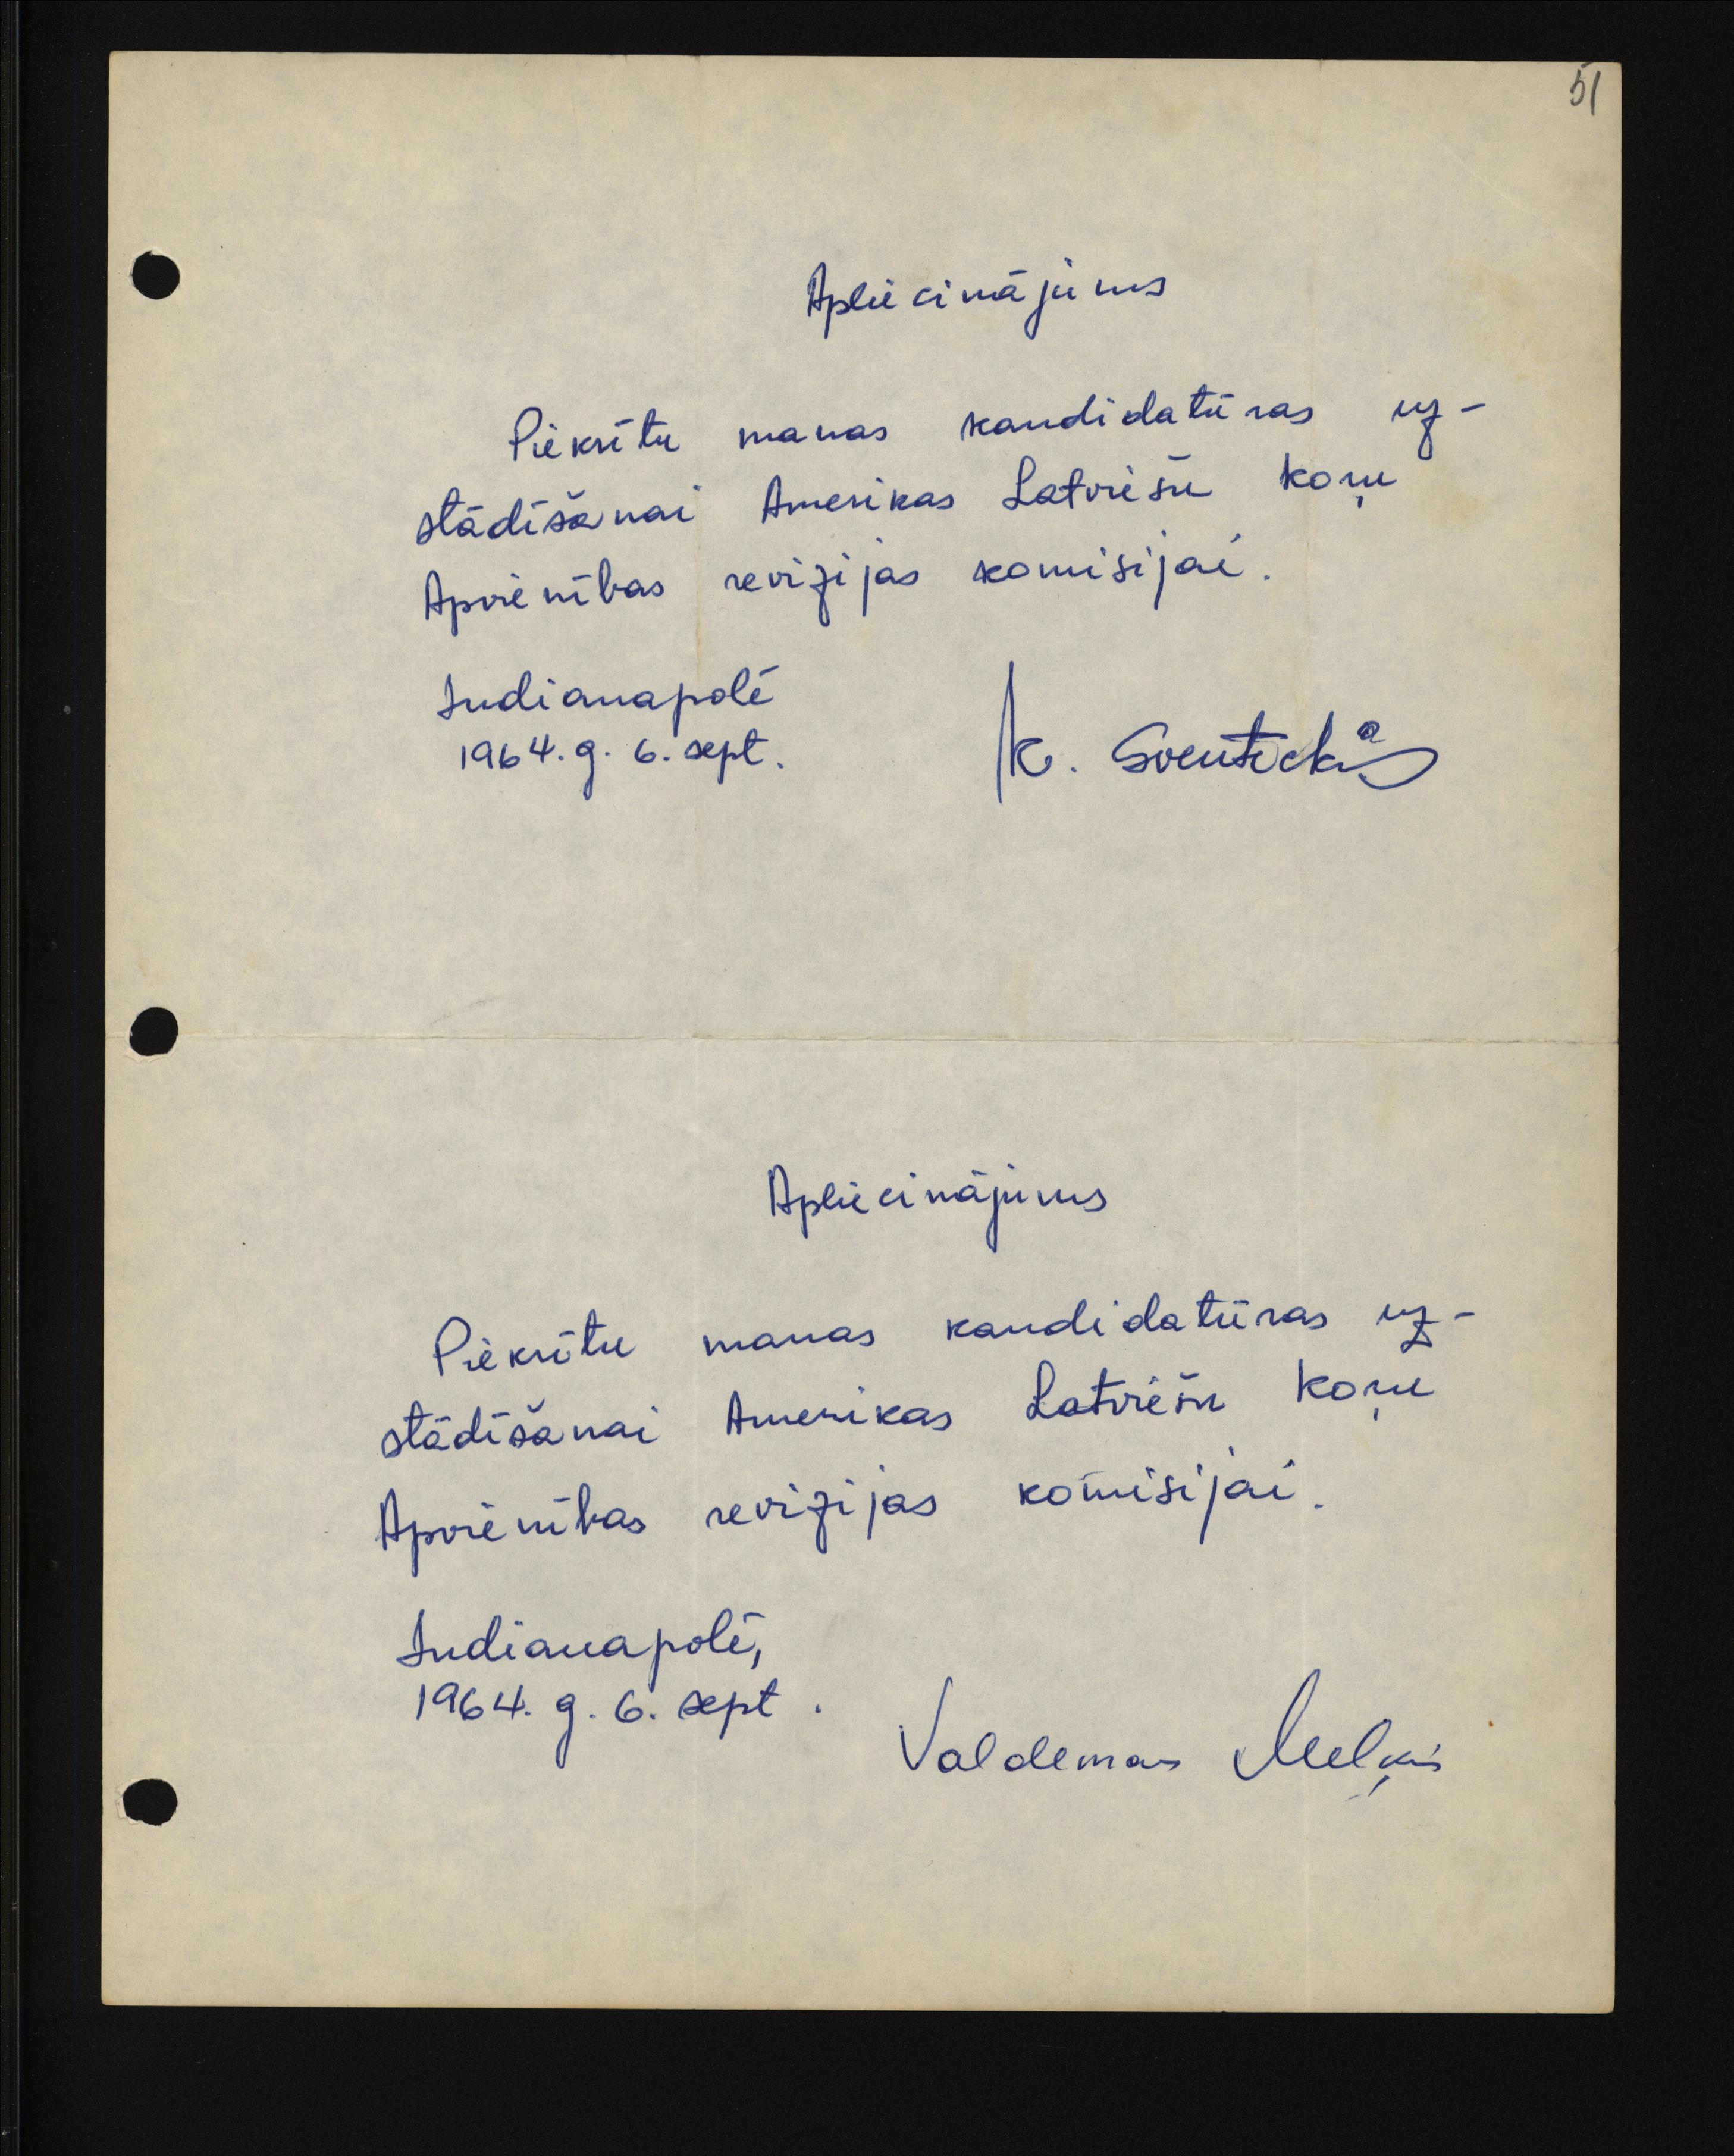 51
Apliecinājums
Piekrītu manas kandidatūras uz-
stādīšanai Amerikas Latviešu Koŗu
Apvienības revizijas komisijai.
Indianapolē
1964. g. 6. sept.
K.
Apliecinājums
Piekrītu manas kandidatūras uz-
stādīšanai Amerikas Latviešu Koŗu
Apvienības revizijas komisijai.
Indianapolē,
1964. g. 6. sept.
Valdemars Melķis